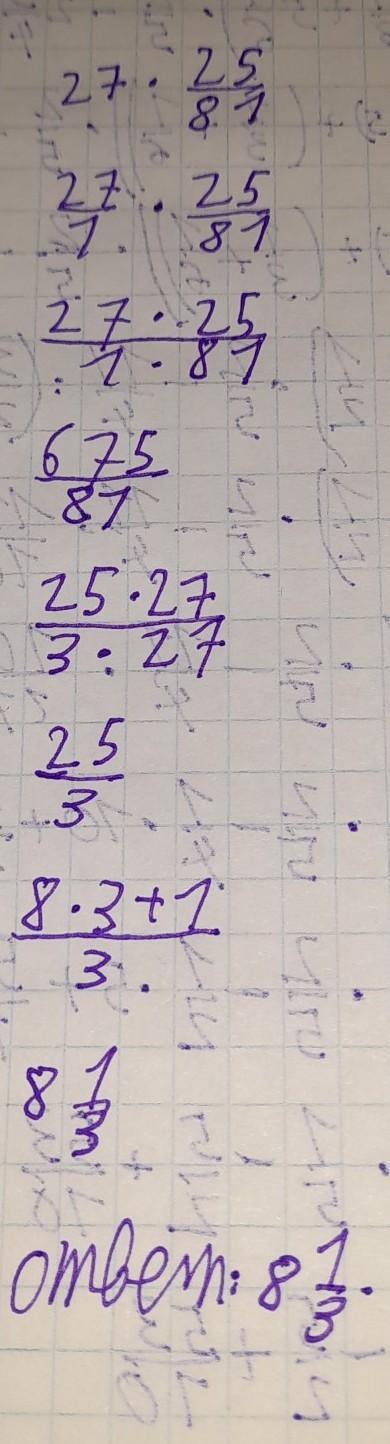 27 · 25/81
27/1 · 25/81
27 · 25/1 · 81
675/81
25 · 27/3 · 27
25/3
8 · 3 + 1/3
8 1/3
ответ: 8 1/3.